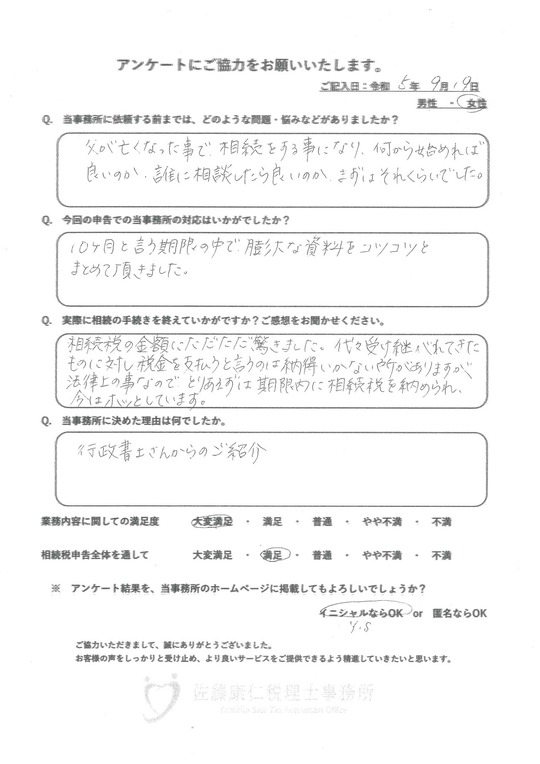 アンケートにご協力をお願いいたします。
ご記入日：令和 5年 9月19日
男性 ・ 女性
Q. 当事務所に依頼する前までは、どのような問題・悩みなどがありましたか？
父が亡くなった事で相続をする事になり、何から始めれば
良いのか、誰に相談したら良いのか、まずはそれくらいでした。
Q. 今回の申告での当事務所の対応はいかがでしたか？
10ヶ月と言う期限の中で膨大な資料をコツコツと
まとめて頂きました。
Q. 実際に相続の手続きを終えていかがですか？ご感想をお聞かせください。
相続税の金額にただただ驚きました。代々受け継がれてきた
ものに対し税金を支払うと言うのは納得いかない所がありますが
法律上の事なのでとりあえずは期限内に相続税を納められ、
今はホッとしています。
Q. 当事務所に決めた理由は何でしたか。
行政書士さんからのご紹介
業務内容に関しての満足度 大変満足 ・ 満足 ・ 普通 ・ やや不満 ・ 不満
相続税申告全体を通して 大変満足 ・ 満足 ・ 普通 ・ やや不満 ・ 不満
※ アンケート結果を、当事務所のホームページに掲載してもよろしいでしょうか？
イニシャルならOK or 匿名ならOK
Y.S
ご協力いただきまして、誠にありがとうございました。
お客様の声をしっかりと受け止め、より良いサービスをご提供できるよう精進していきたいと思います。
佐藤康仁税理士事務所